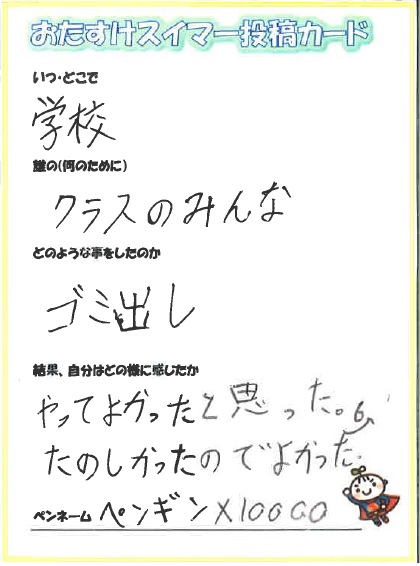 おたすけスイマー投稿カード
いつ・どこで
学校
誰の(何のために)
クラスのみんな
どのような事をしたのか
ゴミ出し
結果、自分はどの様に感じたか
やってよかったと思った。
たのしかったのでよかった.
ペンネーム ペンギン×10000